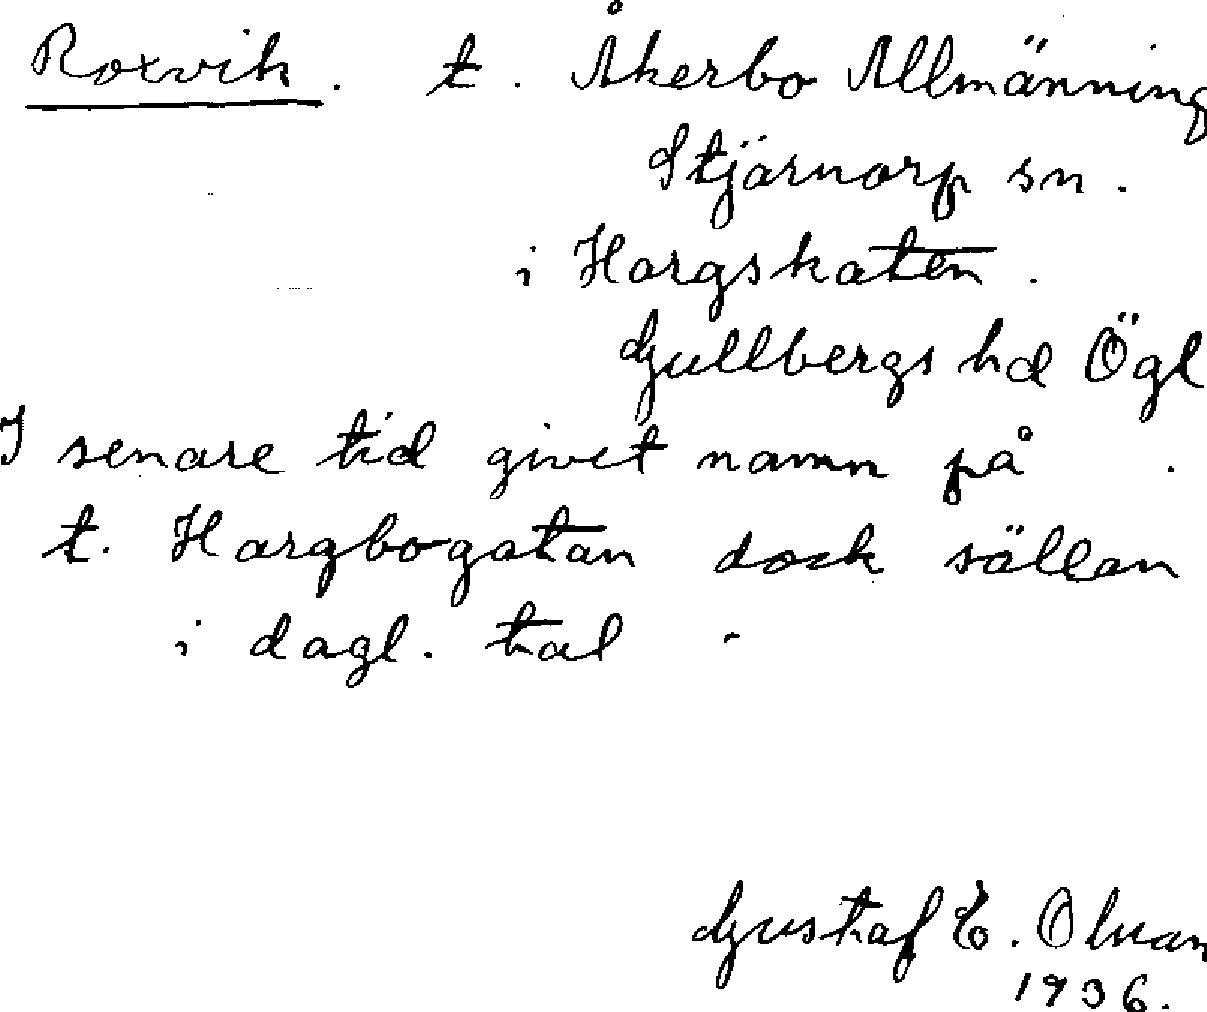 Roxvik. t. Åkerbo Allmänning
Stjärnorp sn.
i Hargskaten.
Gullbergs hd Ögl
I senare tid givet namn på
t. Hargbogatan dock sällan
i dagl. tal
Gustaf E. Olman
1936.